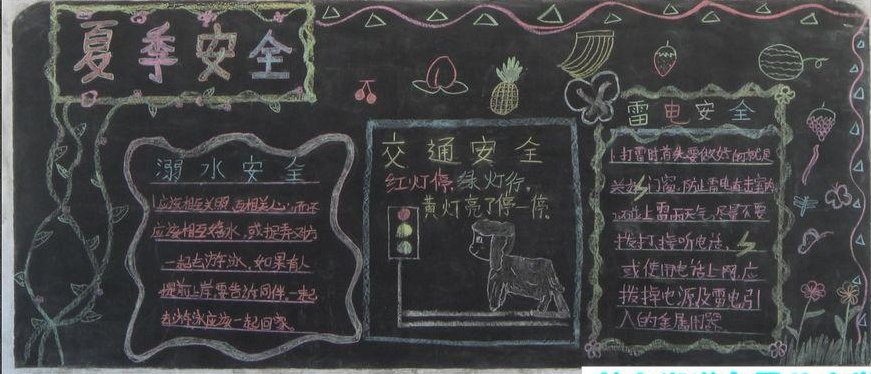 夏季安全
溺水安全
1.应该相互关照,互相关心,而不
应该相互泼水,或捉弄对方
一起去游泳,如果有人
提前上岸要告诉同伴,一起
去游泳应该一起回家
交通安全
红灯停,绿灯行,
黄灯亮了停一停
雷电安全
1.打雷时首先要做好的就是
关好门窗,防止雷电直击室内
2.不碰上雷雨天气,尽量不要
拨打接听电话,
或使用电话上网,应
拨掉电源及雷电引
入的金属